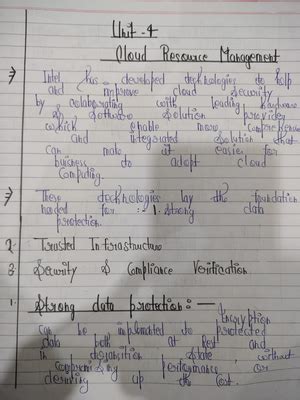 Unit - 4
Cloud Resource Management
Intel has developed technologies to help
and improve cloud security
by colaborating with leading Hardware
& Software Solution provider
which enable more comprehensive
and integrated solution that
can make it easier for
business to adopt cloud
computing.
These technologies lay the foundation
needed for :- 1. Strong data
protection.
2. Trusted Infrastructure
3. Security & Compliance Verification
1. Strong data protection: —
Encryption
can be implemented to protected
data both at Rest and
in state, without
compromising performance or
driving up the cost.